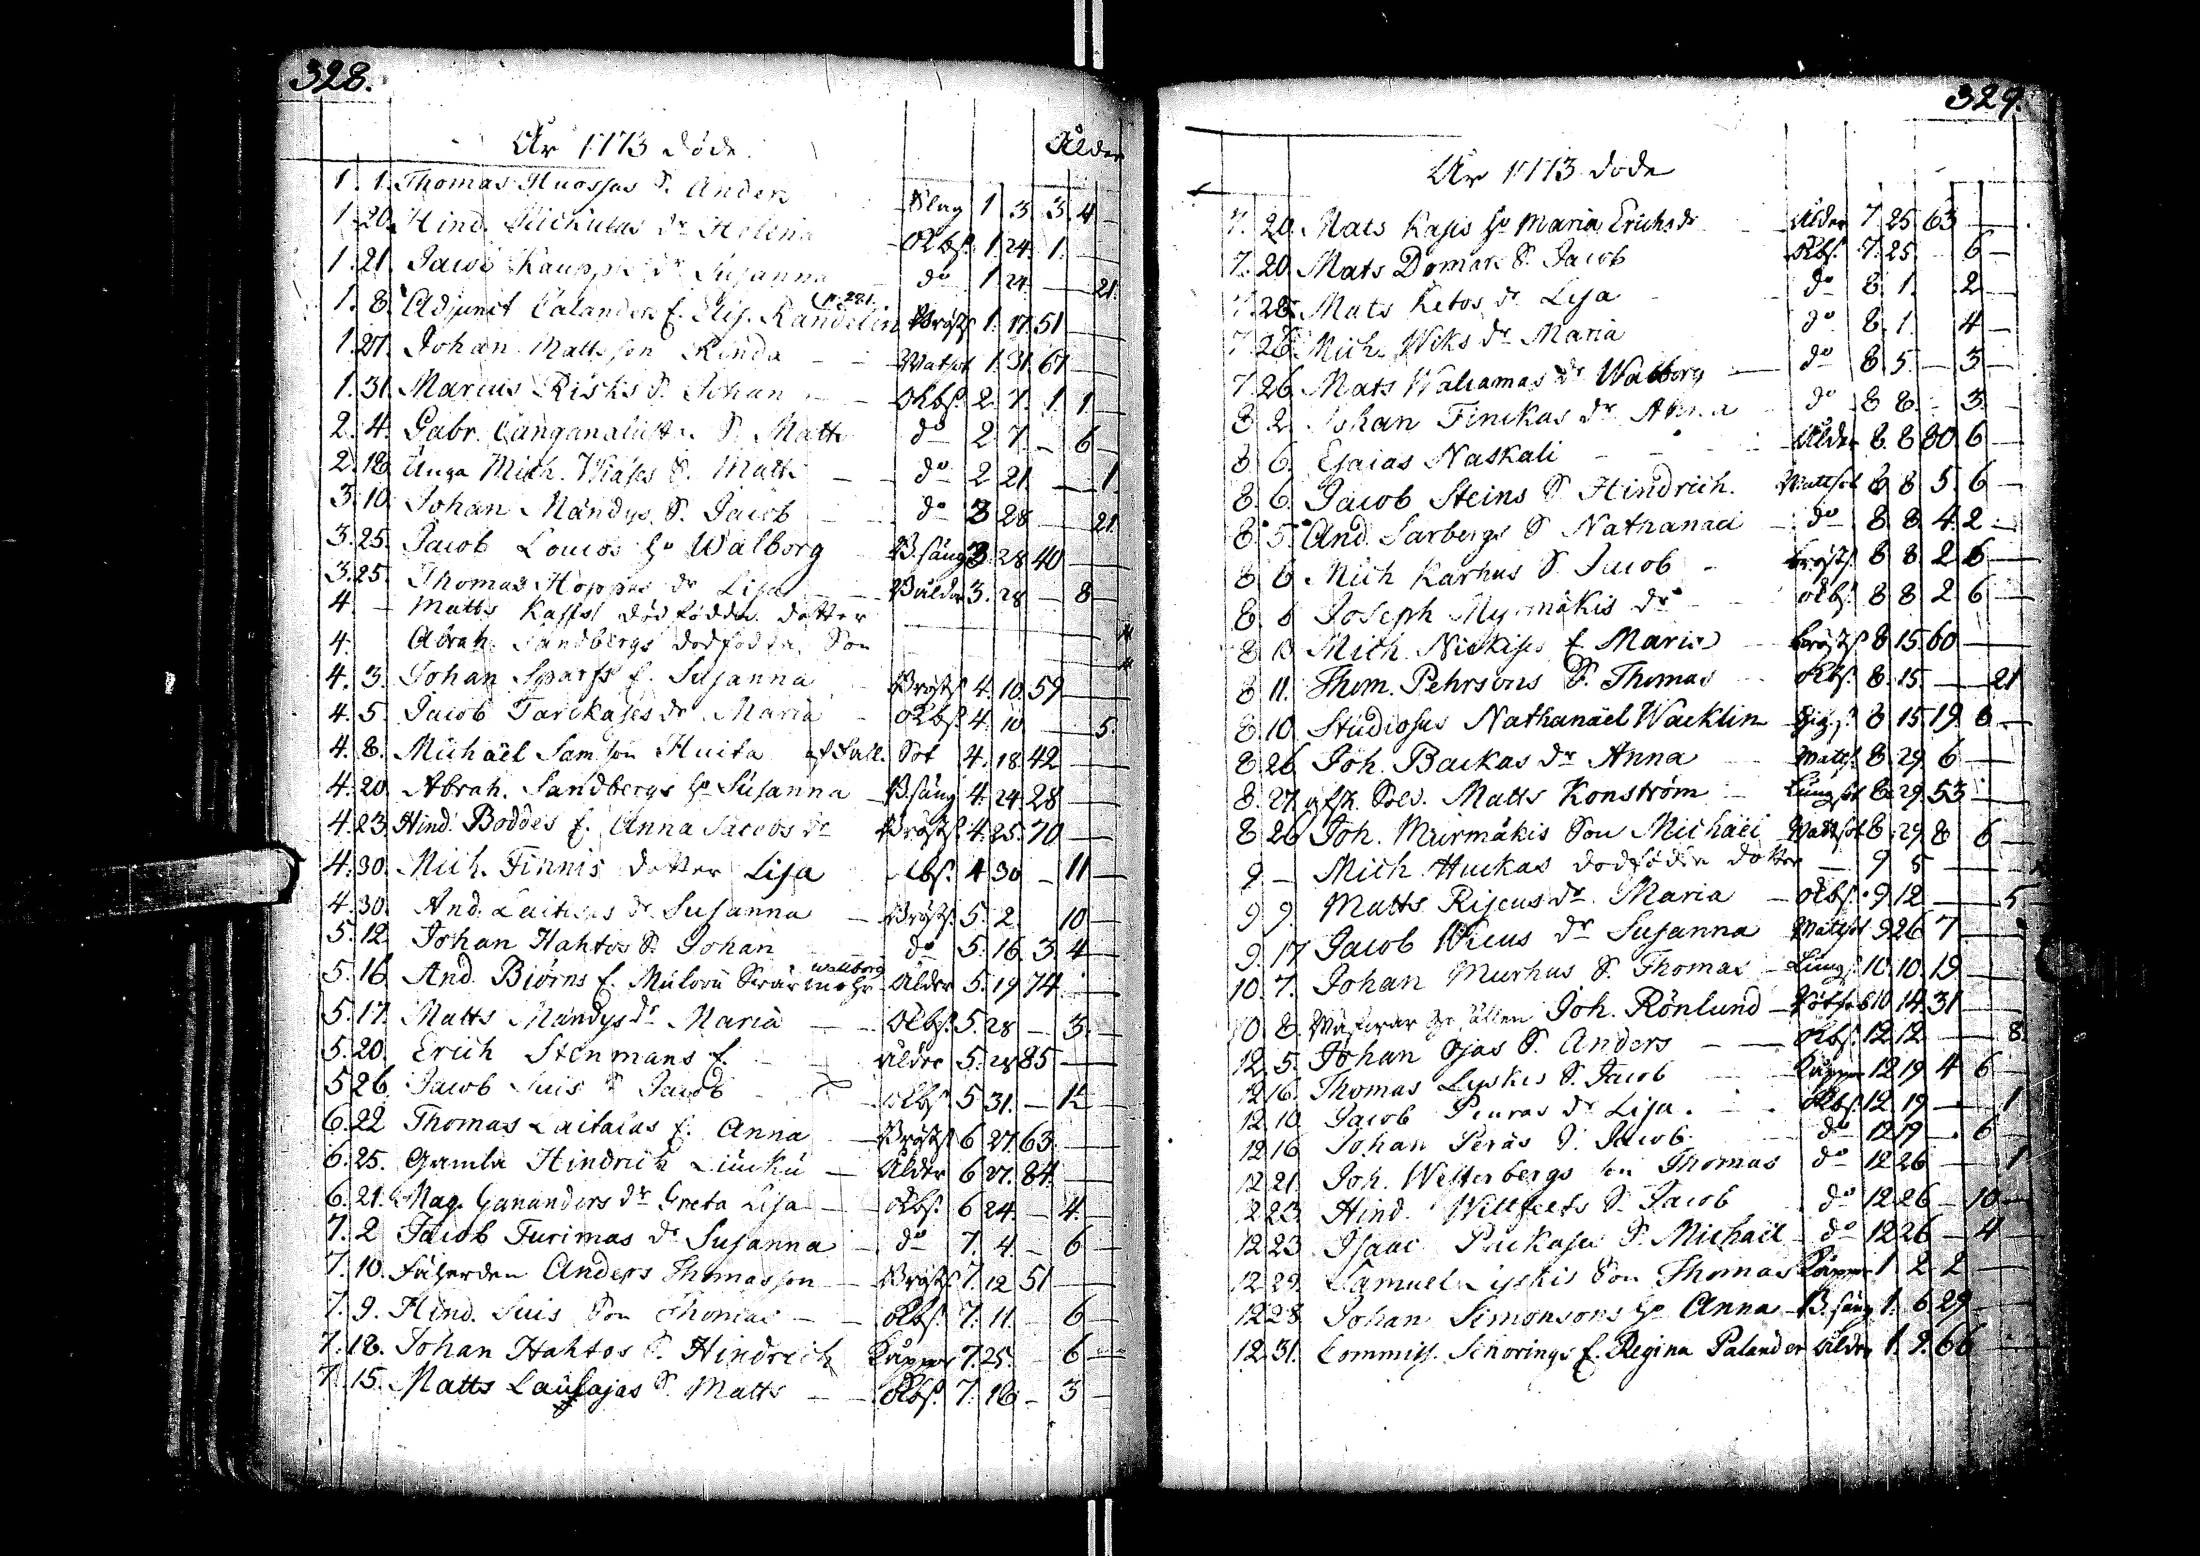 328.
År 1773 döde. Ålder
1. 1. Thomas Huossas S. Anders Slag 1. 3. 3. 4 —
1. 20. Hind. dr Helena Okbs. 1. 24. 1. —
1. 21. Jacob Kauppis dr Susanna do 1. 24. — 21.
p. 221.
1. 8. Adjunct Calanders E. Lis. Randelin Bröst 1. 17. 51 —
1. 27. Johan Mattsson Rinda — Watsot 1. 31. 67 —
1. 31. Marcus Risks S. Johan — Okbs. 2. 7. 1. 1 —
2. 4. Gabr. S. Matts do 2. 7. — 6 —
2. 18. Unga Mich. S. Matts — do 2 21. — 1.
3. 10. Johan Mandys S. Jacob — do 3 28 — 21.
3. 25. Jacob Loucos Hu Walborg B.säng 3. 28 40 —
3. 25. Thomas Hoppas dr Lisa — 3. 28 — 8 —
4. — Matts Kasses dödfödda dotter
4. Abrah. Sandbergs dödfödda Son
4. 3. Johan Sparfs E. Susanna — Bröst 4. 10. 59 —
4. 5. Jacob Tarckases dr Maria — Okbs. 4. 10 — 5.
4. 8. Michaël Samson Huita af fall. Sot 4. 18 42 —
4. 20. Abrah. Sandbergs Hu Susanna — B.säng 4. 24 28 —
4. 23. Hind. Boddes E. Anna Jacobs dr Bröst 4. 25. 70 —
4. 30. Mich. Finnis dotter Lisa Okbs. 4 30 — 11 —
4. 30. And. Laitilas dr Susanna — Bröst 5. 2. 10 —
5. 12. Johan Hahtos S. Johan do 5. 16. 3. 4 —
Wallborg
5. 16. And. Biörns E. — Ålder 5. 19 74 —
5. 17. Matts Mandys dr Maria — Okbs. 5. 28 — 3. —
5. 20. Erich Stenmans E. — Ålder 5. 28 85 —
5 26. Jacob Suis S. Jacob Okbs. 5 31. —
6. 22 Thomas Laitalas E. Anna — Bröst 6 27. 63. —
6. 25. Gamla Hindrich Liucku — Ålder 6 27. 84. —
6. 21. Mag. Gananders dr Greta Lisa — Okbs. 6 24. — 4. —
7. 2 Jacob Turimas dr Susanna — do 7. 4. — 6 —
7. 10. Fäherden Anders Thomasson — Bröst 7. 12 51 —
7. 9. Hind. Suis Son Thomas — Okbs. 7. 11. — 6 —
7. 18. Johan Hahtos S. Hindrich Koppor 7. 25. — 6 —
7. 15. Matts S. Matts — Okbs. 7. 18 — 3 —
329.
År 1773 döde
7. 20. Mats Kasis Hu Maria Erichsdr Ålder 7. 25 63 —
7. 20. Mats Domars S. Jacob Okbs. 7. 25. 6 —
7. 28. Mats Ketos dr Lisa do 8. 1. 2 —
7. 26. Mich. Wiks dr Maria do 8. 1. 4 —
7. 26. Mats Waliamas dr Walborg — do 8 5. — 3 —
8. 2. Johan Finckas dr Anna do 8 8. — 3. —
8. 6. Esaias Naskali — Ålder 8. 8 80 6 —
8. 6. Jacob Steins S. Hindrich. Wattsot 8 8 5. 6 —
8. 5. And. Sarbergs S Nathanael — do 8. 8. 4. 2 —
8. 6. Mich Karhus S. Jacob — Bröst 8 8 2 6 —
8. 8. Joseph Nyomäkis dr — Okbs. 8 8 2 6 —
8. 13. Mich. Nickises E Maria Bröst 8 15. 60 —
8. 11. Thom. Pehrsons S. Thomas Okbs. 8. 15. — 21
8. 10. Studiosus Nathanaël Wacklin 8 15. 19. 6 —
8. 26. Joh. Backas dr Anna Watts. 8. 29 6 —
8. 27. afsk. Sold. Matts Konström — Lungsot 8. 29. 53 —
8. 26. Joh. Murmäkis Son Michaël Wattsot 8. 29 8 6 —
9. — Mich Huckas dödfödda dotter — 9 5 —
9. 9. Matts Riscus dr Maria — Okbs. 9 12 — 5
9. 17 Jacob Wicus dr Susanna Watsot 9 26 7 —
10. 7. Johan Murhus S. Thomas — Lungs. 10. 10. 19 —
10. 8. Gesällen Joh. Rönlund — Rötfeb 10 14. 31 —
12. 5. Johan Ojas S. Anders — Okbs. 12 12 — 8.
12 16. Thomas Lyskis S. Jacob Koppor 12 19 4 6 —
12. 10. Jacob Piuras dr Lisa. — Okbs. 12. 19 — 1
12 16 Johan Peräs S. Jacob. do 12 19 — 6 —
12 21. Joh. Westerbergs Son Thomas do 12 26 — 1
12 23. Hind. Willfelts S. Jacob do 12 26 — 10 —
12 23 Isaac Puckases S. Michaël — do 12 26 — 4 —
12 29. Samuel Lyskis Son Thomas Koppor 1 2 2 —
12 28. Johan Simonsons Hu Anna — B. säng 1. 6 29 —
12. 31. Commiss. Schorings E. Regina Palander Ålder 1. 9. 66